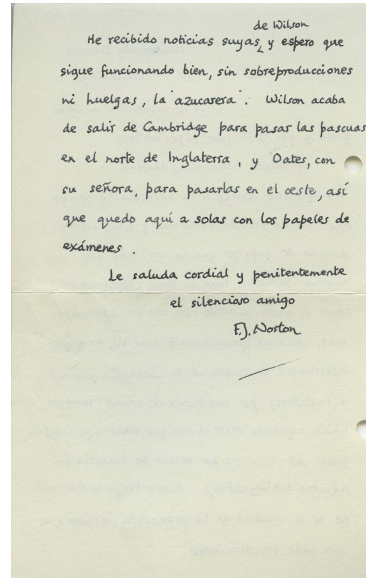 de Wilson
He recibido noticias suyas, y espero que
sigue funcionando bien, sin sobreproducciones
ni huelgas, la "azucarera". Wilson acaba
de salir de Cambridge para pasar las pascuas
en el norte de Inglaterra, y Oates, con
su señora, para pasarlas en el oeste, así
que quedo aquí a solas con los papeles de
exámenes.
Le saluda cordial y penitentemente
el silencioso amigo
F.J. Norton